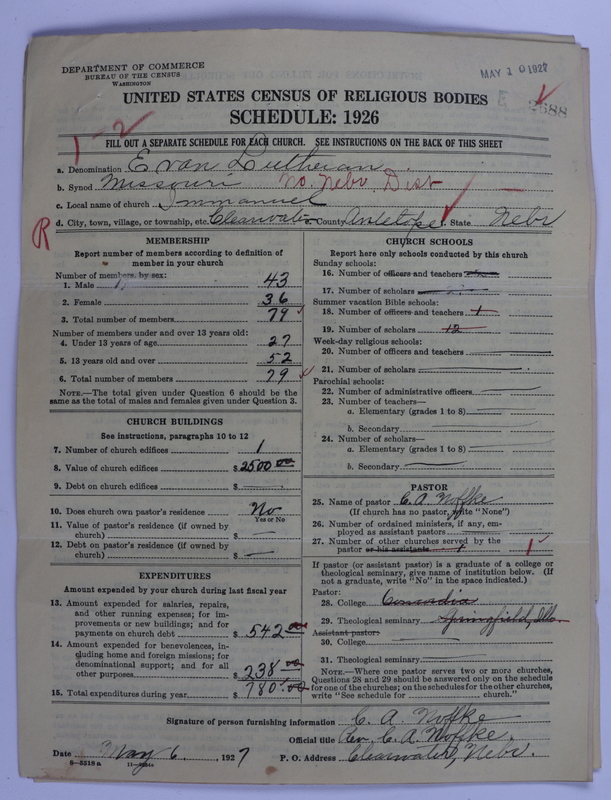 DEPARTMENT OF COMMERCE
BUREAU OF THE CENSUS
WASHINGTON
MAY 10 1927
UNITED STATES CENSUS OF RELIGIOUS BODIES
SCHEDULE: 1926
1-2
FILL OUT A SEPARATE SCHEDULE FOR EACH CHURCH. SEE INSTRUCTIONS ON THE BACK OF THIS SHEET
a. Denomination Evan Lutheran
b. Synod Missouri No. Nebr. Dist
c. Local name of church Immanuel
d. City, town, village, or township, etc. Clearwater County Antelope State Nebr
R
MEMBERSHIP
Report number of members according to definition of
member in your church
Number of members, by sex:
1. Male 43
2. Female 36
3. Total number of members 79
Number of members under and over 13 years old:
4. Under 13 years of age 27
5. 13 years old and over 52
6. Total number of members 79
NOTE.—The total given under Question 6 should be the
same as the total of males and females given under Question 3.
CHURCH BUILDINGS
See instructions, paragraphs 10 to 12
7. Number of church edifices 1
8. Value of church edifices $2500 00
9. Debt on church edifices $
10. Does church own pastor's residence No
Yes or No
11. Value of pastor's residence (if owned by
church) $
12. Debt on pastor's residence (if owned by
church) $
EXPENDITURES
Amount expended by your church during last fiscal year
13. Amount expended for salaries, repairs,
and other running expenses; for im-
provements or new buildings; and for
payments on church debt $542 00
14. Amount expended for benevolences, in-
cluding home and foreign missions; for
denominational support; and for all
other purposes $238 00
15. Total expenditures during year $780.00
CHURCH SCHOOLS
Report here only schools conducted by this church
Sunday schools:
16. Number of officers and teachers
17. Number of scholars
Summer vacation Bible schools:
18. Number of officers and teachers 1
19. Number of scholars 12
Week-day religious schools:
20. Number of officers and teachers
21. Number of scholars
Parochial schools:
22. Number of administrative officers
23. Number of teachers—
a. Elementary (grades 1 to 8)
b. Secondary
24. Number of scholars—
a. Elementary (grades 1 to 8)
b. Secondary
PASTOR
25. Name of pastor C. A. Noffke
(If church has no pastor, write "None")
26. Number of ordained ministers, if any, em-
ployed as assistant pastors
27. Number of other churches served by the
pastor or his assistants 1 1
If pastor (or assistant pastor) is a graduate of a college or
theological seminary, give name of institution below. (If
not a graduate, write "No" in the space indicated.)
Pastor:
28. College Concordia
29. Theological seminary Springfield, Ills.
Assistant pastor:
30. College
31. Theological seminary
NOTE.—Where one pastor serves two or more churches,
Questions 28 and 29 should be answered only on the schedule
for one of the churches; on the schedules for the other churches,
write "See schedule for church."
Signature of person furnishing information C. A. Noffke
Official title Rev. C. A. Noffke.
Date May 6, 1927 P. O. Address Clearwater, Nebr.